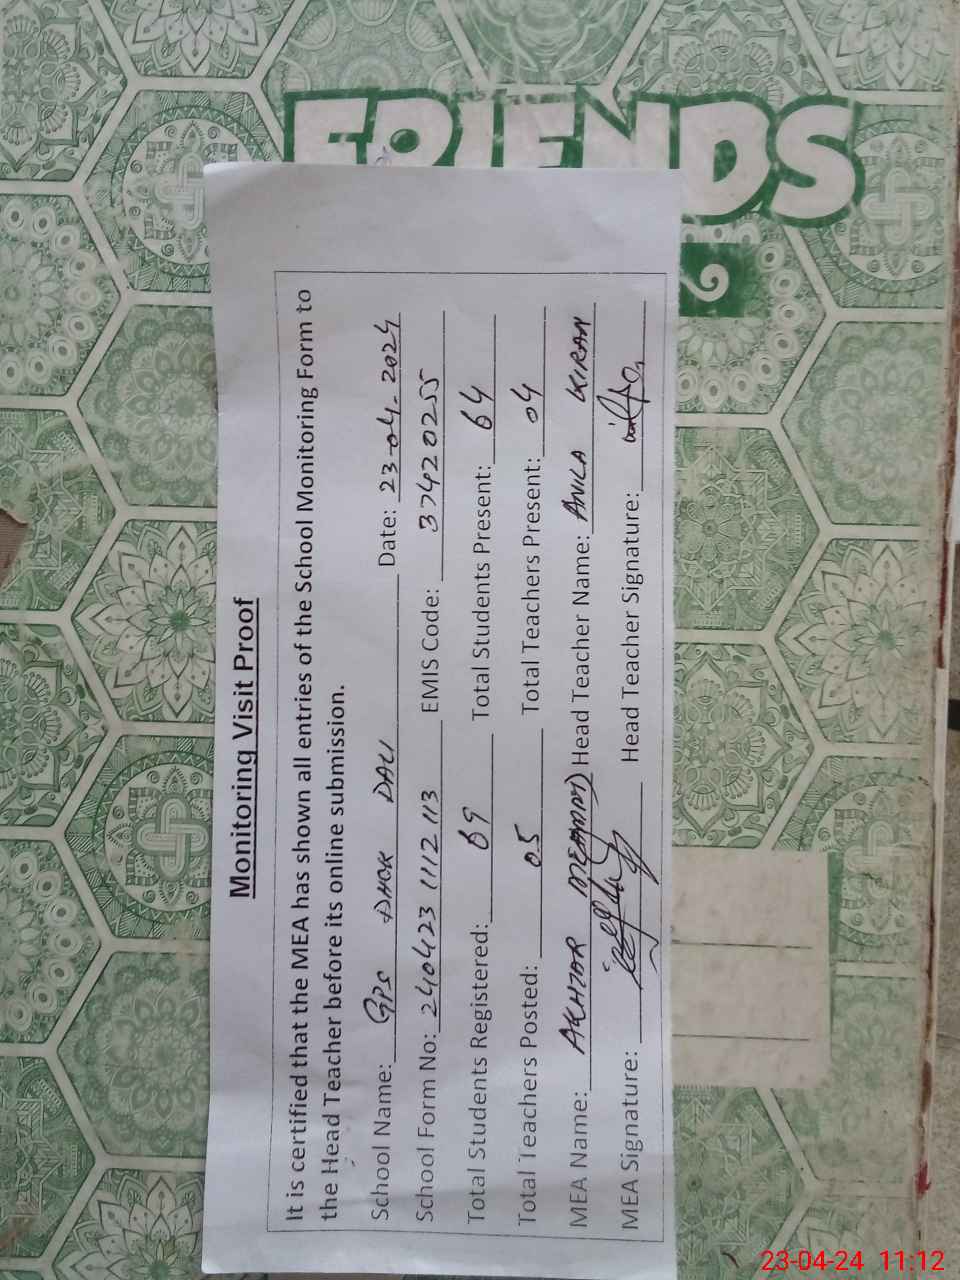 FRIENDS
Monitoring Visit Proof
It is certified that the MEA has shown all entries of the School Monitoring Form to
the Head Teacher before its online submission.
School Name: GPS DHOK DALI Date: 23-04-2024
School Form No: 2404231112113 EMIS Code: 37420255
Total Students Registered: 69 Total Students Present: 64
Total Teachers Posted: 05 Total Teachers Present: 04
MEA Name: AKHTAR Head Teacher Name: ANILA KIRAN
MEA Signature: Head Teacher Signature:
23-04-24 11:12